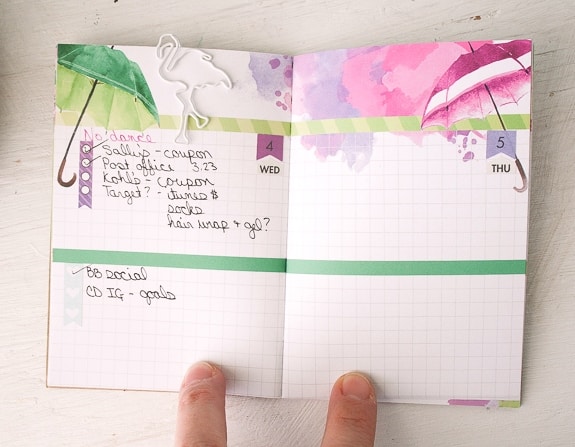 No dance
Sally's - coupon
Post office 3.23
Kohl's - coupon
Target? - itunes $
socks
hair wrap & gel?
4
WED
BB social
CD IG - goals
5
THU